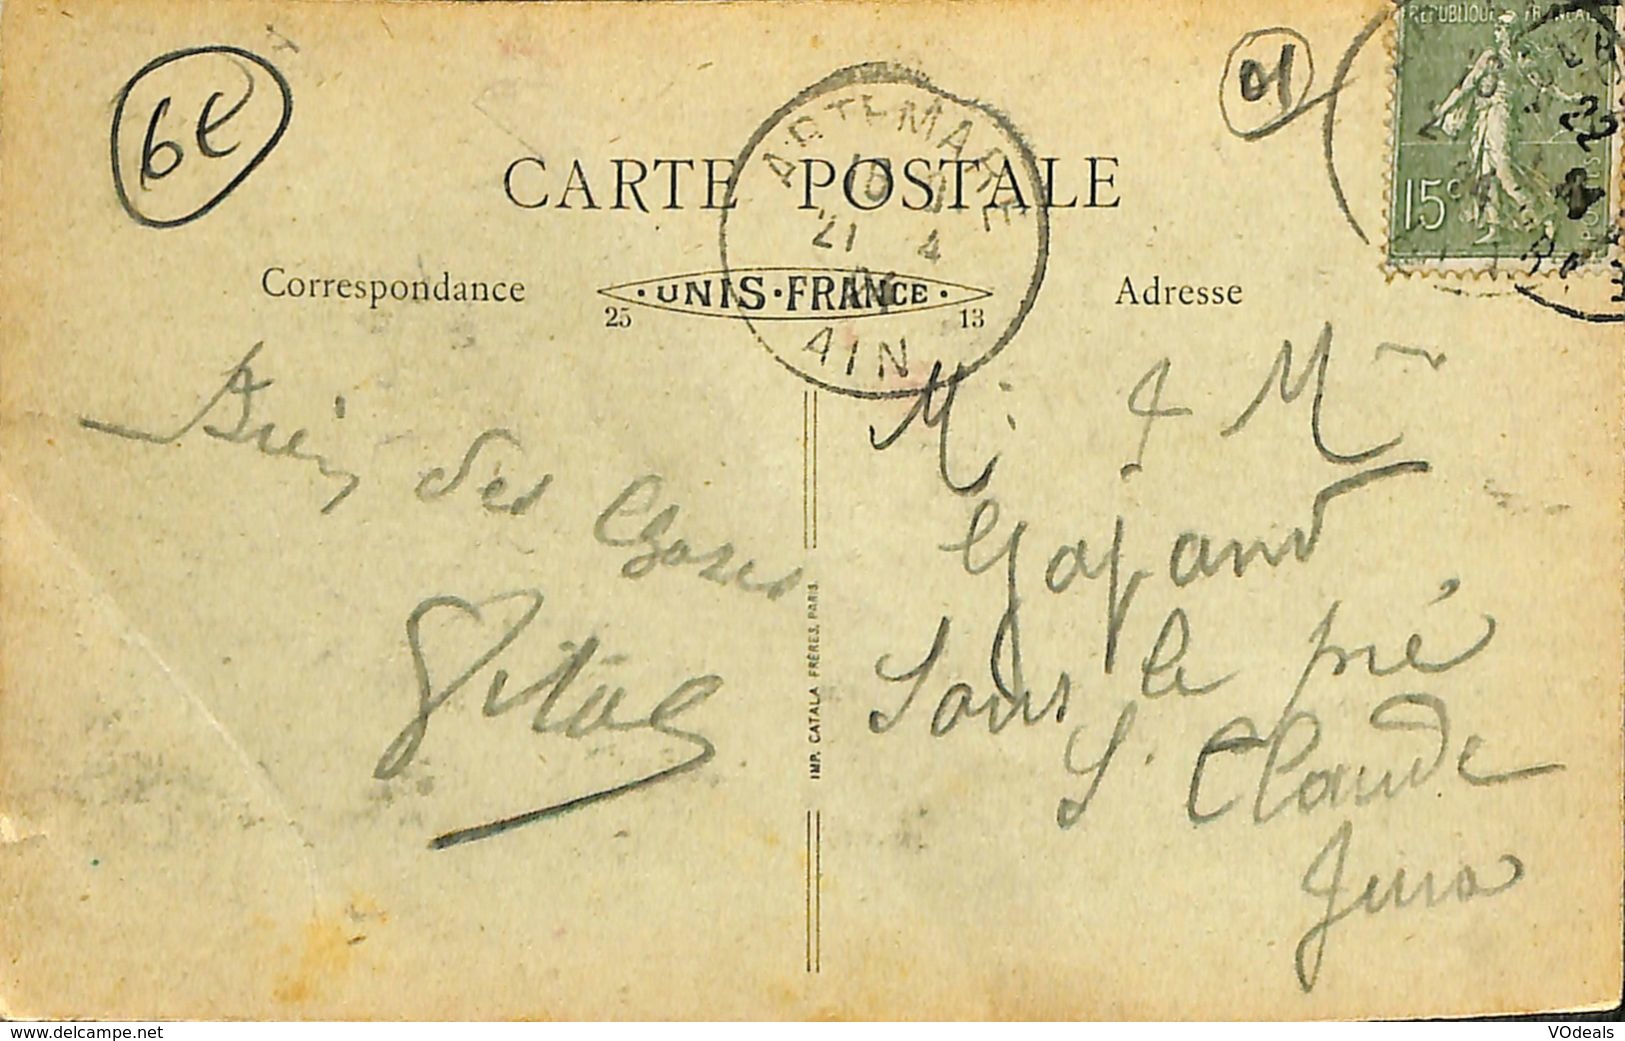 6€
01
REPUBLIQUE FRANCAISE
15c
POSTES
ARTEMARE
21 4
AIN
CARTE POSTALE
Correspondance
UNIS·FRANCE
25 13
Adresse
Bien des choses
Vital
IMP. CATALA FRÈRES, PARIS.
Mr & Mme
Gajand
Sous le pré
St Claude
Jura
www.delcampe.net
VOdeals